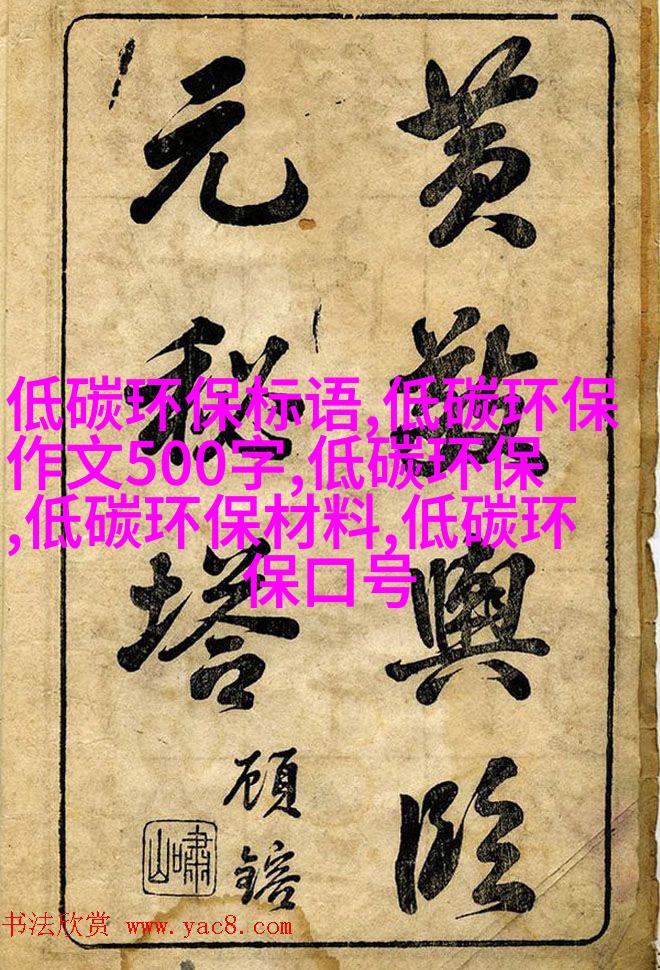 黄敬輿臨
元秘塔
低碳环保标语,低碳环保
作文500字,低碳环保
,低碳环保材料,低碳环
保口号
顧鎔
嘯山
书法欣赏 www.yac8.com